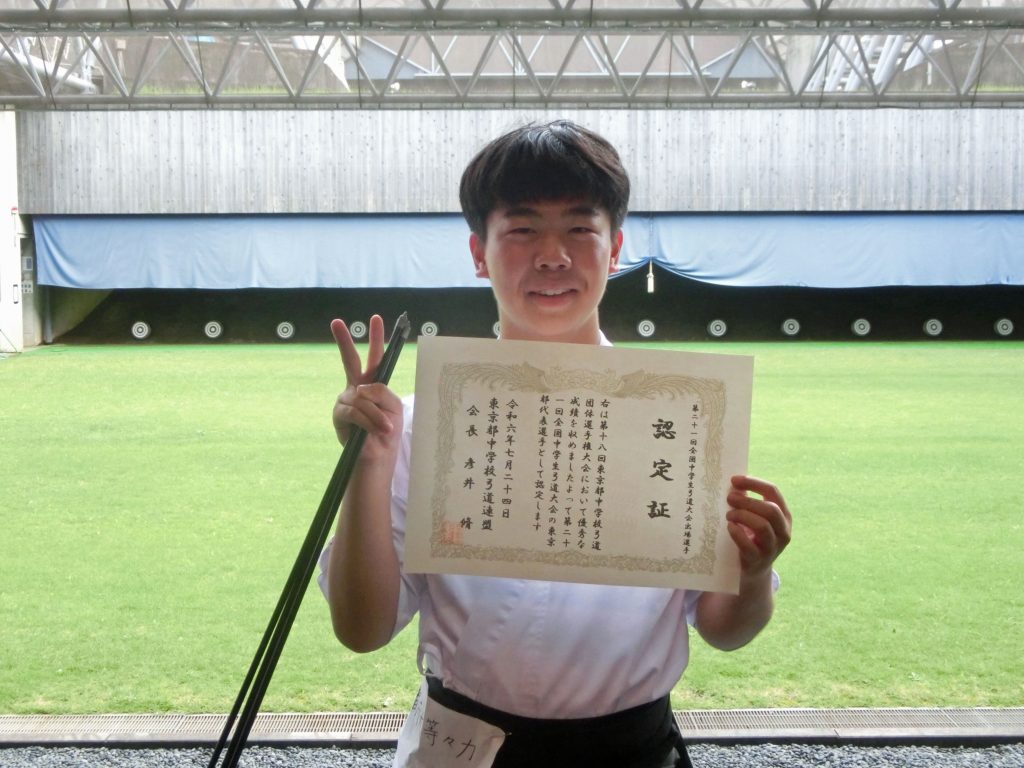 第二十一回全国中学生弓道大会出場選手
認定証
右は第十八回東京都中学校弓道
団体選手権大会において優秀な
成績を収めましたよって第二十
一回全国中学生弓道大会の東京
都代表選手として認定します
令和六年七月二十四日
東京都中学校弓道連盟
会長 彦井 脩
等々力